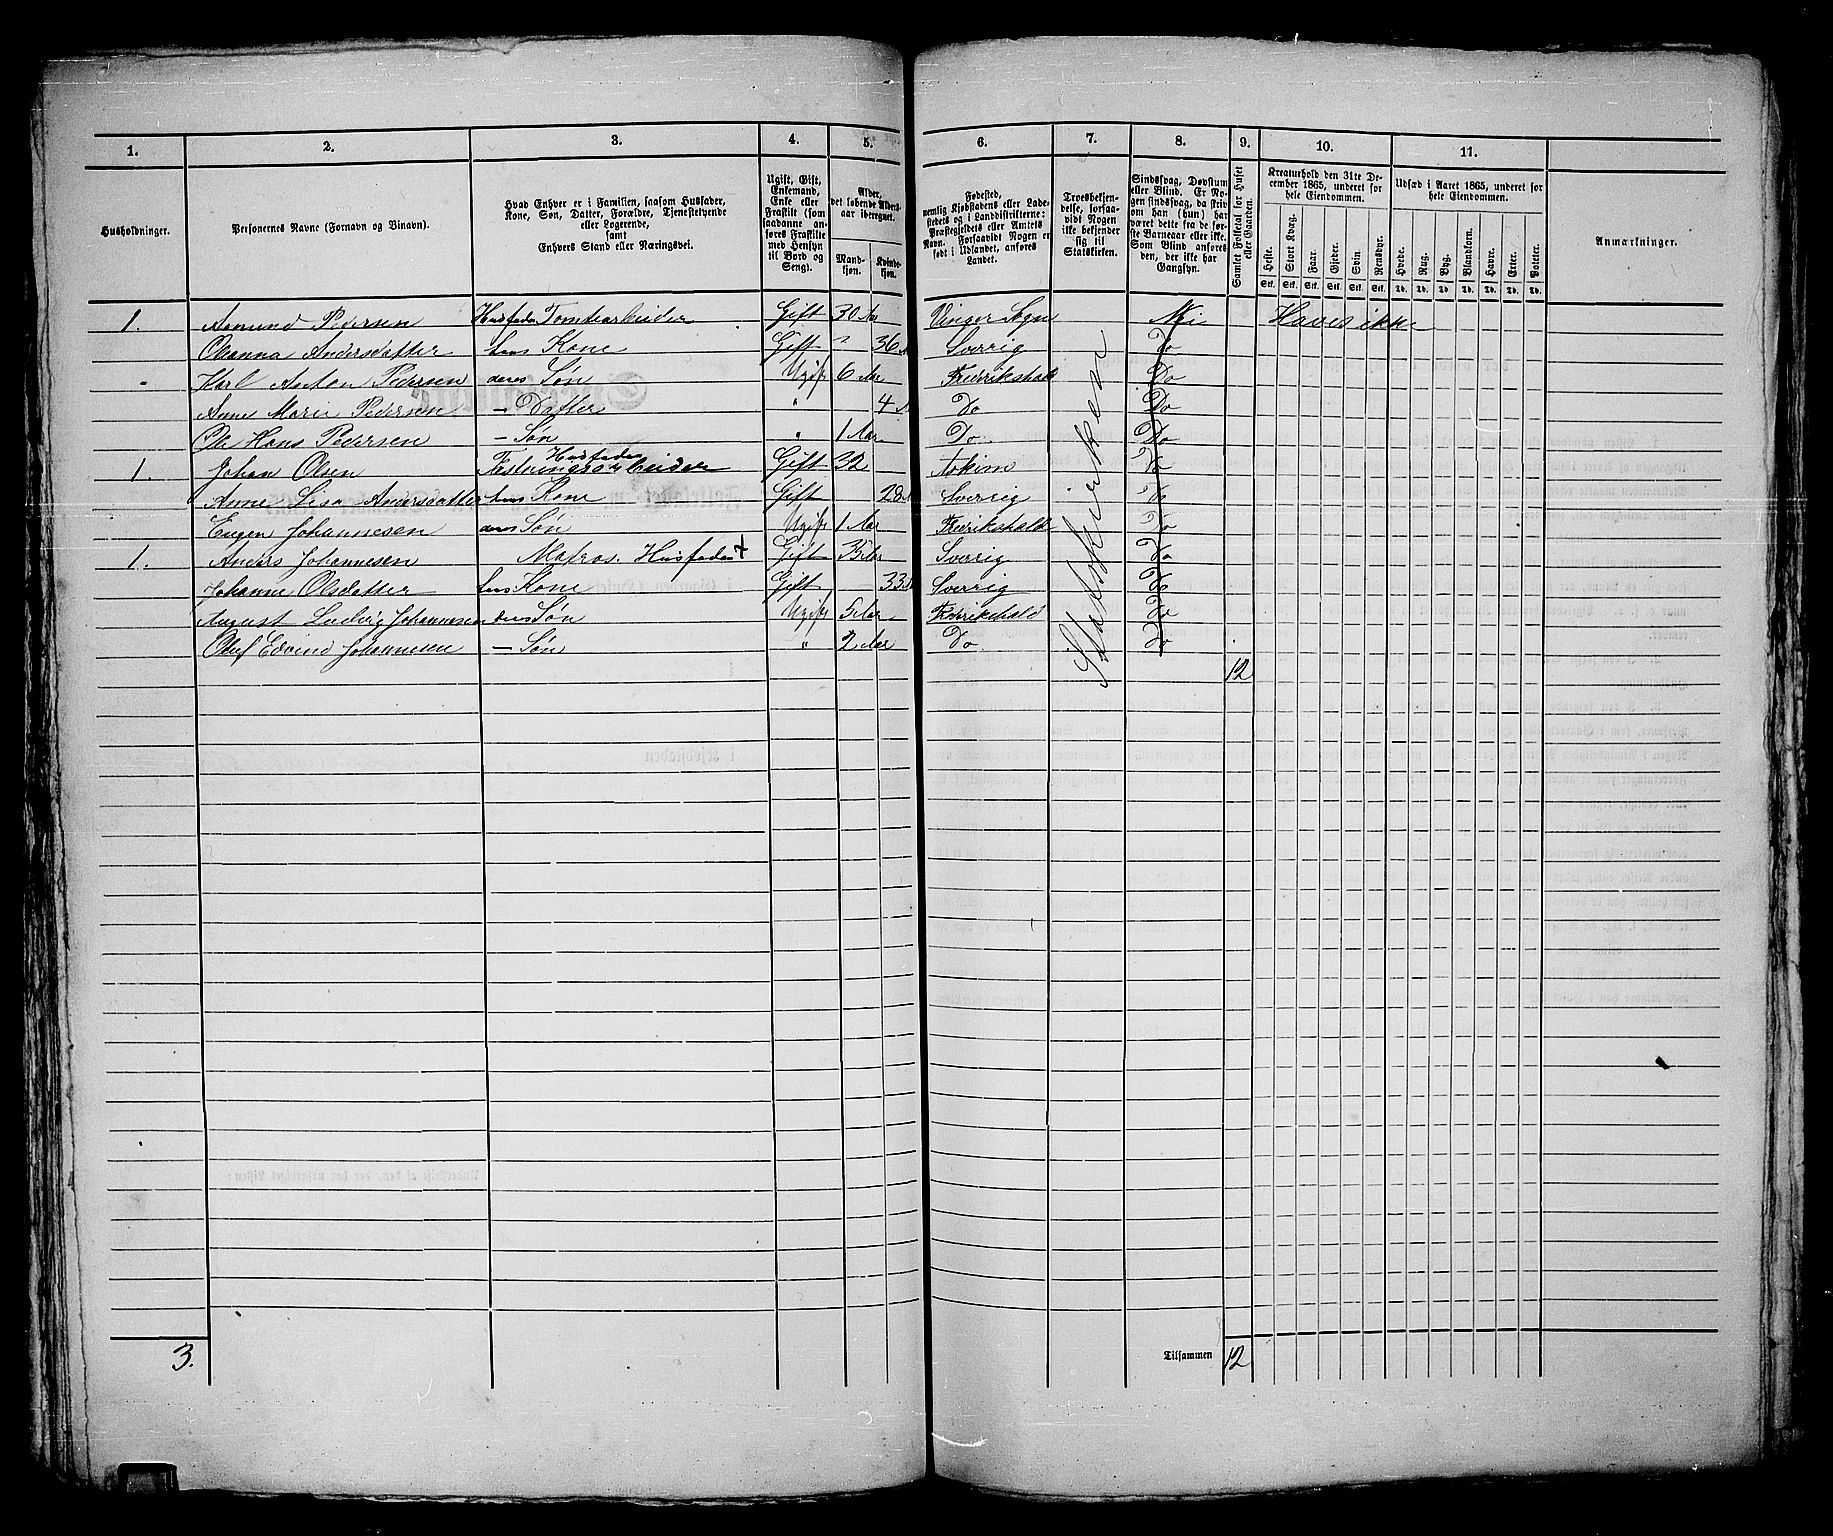 1. 2. 3. 4. 5. 6. 7. 8. 9. 10. 11.
Husholdninger.
Personernes Navne (Fornavn og Binavn).
Hvad Enhver er i Familien, saasom Husfader,
Kone, Søn, Datter, Forældre, Tjenestetyende
eller Logerende,
samt
Enhvers Stand eller Næringsvei.
Ugift, Gift,
Enkemand,
Enke eller
Fraskilt (som
saadanne an-
føres Fraskilte
med Hensyn
til Bord og
Seng).
Alder,
det løbende Alders-
aar iberegnet.
Mand-
kjøn.
Kvinde-
kjøn.
Fødested,
nemlig Kjøbstadens eller Lade-
stedets og i Landdistrikterne:
Præstegjeldets eller Amtets
Navn. Forsaavidt Nogen er
født i Udlandet, anføres
Landet.
Troesbekjen-
delse, forsaa-
vidt Nogen
ikke bekjender
sig til
Statskirken.
Sindssvag, Døvstum
eller Blind. Er No-
gen sindssvag, da skriv
om han (hun) har
været dette fra de før-
ste Barneaar eller ikke.
Som Blind anføres
den, der ikke har
Gangsyn.
Samlet Folketal for Huset
eller Gaarden.
Kreaturhold den 31te De-
cember 1865, underet for
hele Eiendommen.
Heste. Stort Kvæg. Faar. Gjeder. Svin. Rensdyr.
Stk. Stk. Stk. Stk. Stk. Stk.
Udsæd i Aaret 1865, underet for
hele Eiendommen.
Hvede. Rug. Byg. Blandkorn. Havre. Erter. Poteter.
Td. Td. Td. Td. Td. Td. Td.
Anmærkninger.
1. Asmund Pedersen Husfader Tomtearbeider Gift 30 Aar Vinger Sogn Nei Haves ikke
Oleanna Andersdatter hans Kone Gift " 36 A Sverrig Do
Karl Anton Pedersen deres Søn Ugift 6 Aar Fredrikshald Do
Anne Marie Pedersen – Datter " 4 A Do Do
Ole Hans Pedersen – Søn " 1 Aar Do. Do
Husfader
1. Johan Olsen Fæstningsarbeider Gift 32 Askim Do
Anne Lisa Andersdatter hans Kone Gift 28 A Sverrig Do
Eugen Johannesen deres Søn Ugift 1 Aar Fredrikshald Do
1. Anders Johannesen Matros. Husfader + Gift 35 Aar Sverrig Do
Johanne Olsdatter hans Kone Gift – 33 A Sverrig Do
August Ludvig Johannesen deres Søn Ugift 5 Aar Fredrikshald Do
Oluf Edvind Johannesen – Søn " 2 Aar Do. Do
Statskirken
12
3.
Tilsammen 12